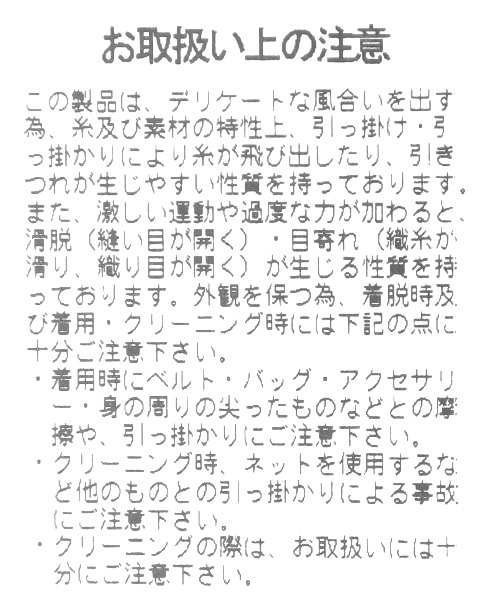 お取扱い上の注意
この製品は、デリケートな風合いを出す
為、糸及び素材の特性上、引っ掛け・引
っ掛かりにより糸が飛び出したり、引き
つれが生じやすい性質を持っております。
また、激しい運動や過度な力が加わると、
滑脱（縫い目が開く）・目寄れ（織糸が
滑り、織り目が開く）が生じる性質を持
っております。外観を保つ為、着脱時及
び着用・クリーニング時には下記の点に
十分ご注意下さい。
・着用時にベルト・バッグ・アクセサリ
ー・身の周りの尖ったものなどとの摩
擦や、引っ掛かりにご注意下さい。
・クリーニング時、ネットを使用するな
ど他のものとの引っ掛かりによる事故
にご注意下さい。
・クリーニングの際は、お取扱いには十
分にご注意下さい。